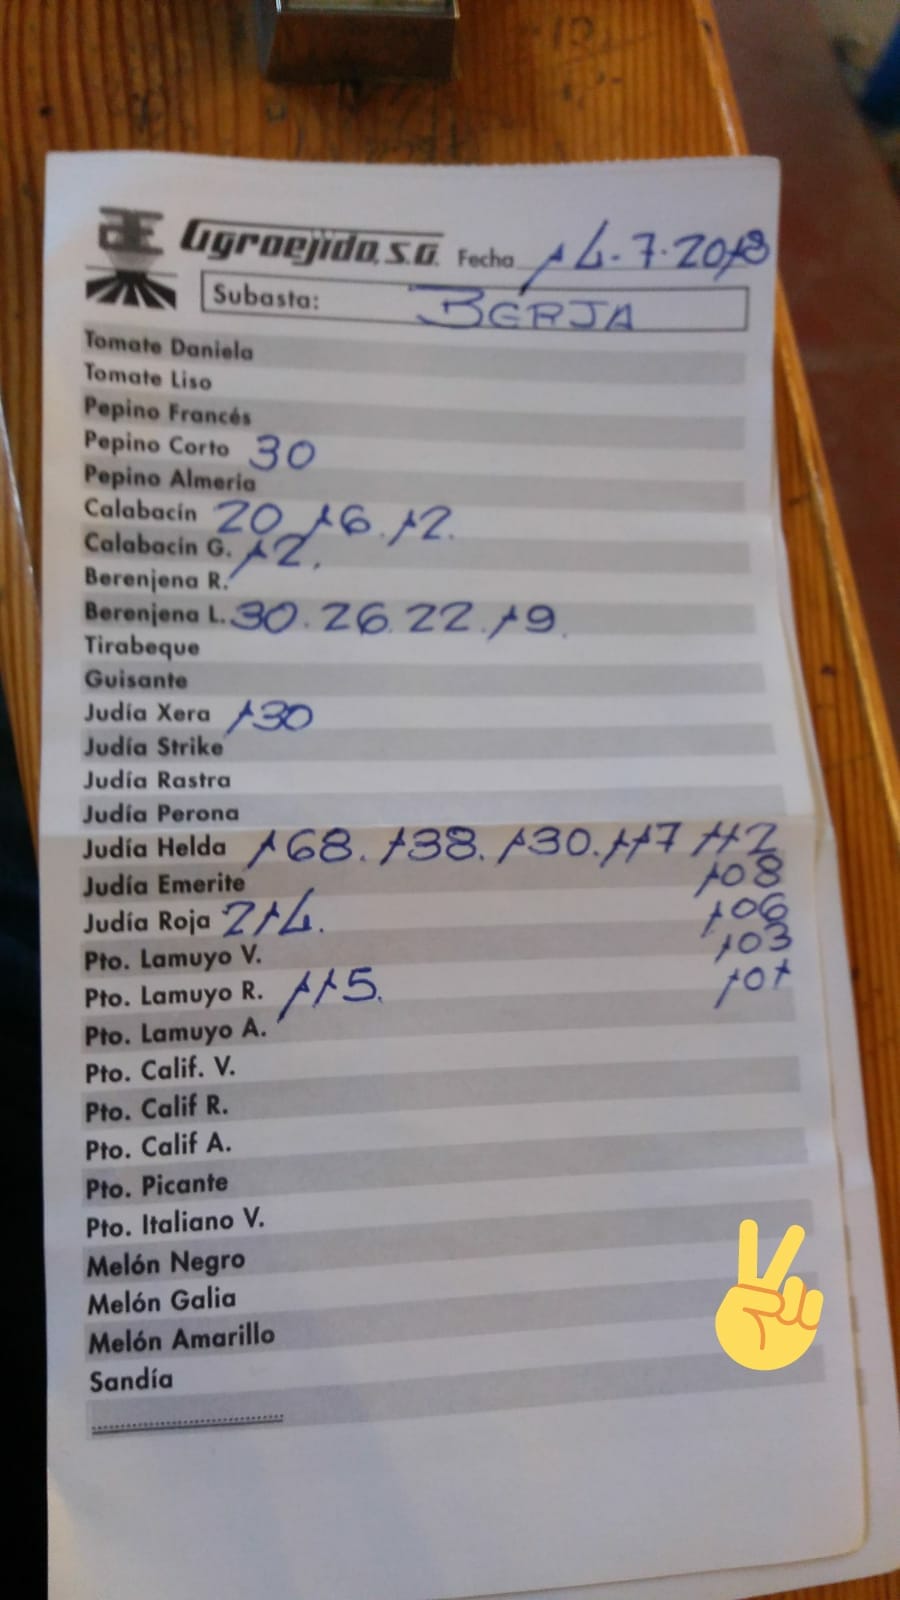 Agroejido, S.A. Fecha 14-7-2018
Subasta: BERJA
Tomate Daniela
Tomate Liso
Pepino Francés
Pepino Corto 30
Pepino Almería
Calabacín 20.16.12.
Calabacín G. 12.
Berenjena R.
Berenjena L. 30.26.22.19.
Tirabeque
Guisante
Judía Xera 130
Judía Strike
Judía Rastra
Judía Perona
Judía Helda 168.138.130.117 112
108
Judía Emerite
106
Judía Roja 214.
103
Pto. Lamuyo V.
101
Pto. Lamuyo R. 115.
Pto. Lamuyo A.
Pto. Calif. V.
Pto. Calif R.
Pto. Calif A.
Pto. Picante
Pto. Italiano V.
Melón Negro
Melón Galia
Melón Amarillo
Sandía